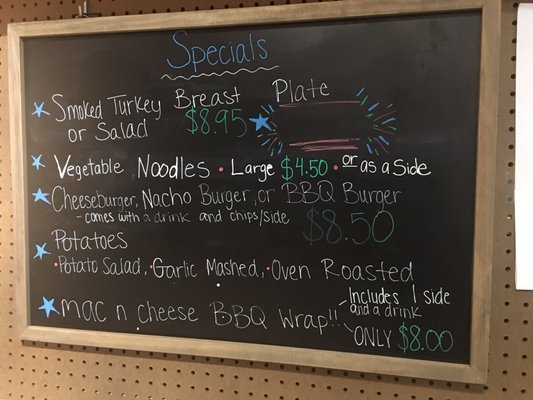 Specials
Smoked Turkey Breast Plate
or Salad $8.95
Vegetable Noodles • Large $4.50 • or as a Side
Cheeseburger, Nacho Burger, or BBQ Burger
- comes with a drink and chips/side $8.50
Potatoes
• Potato Salad, • Garlic Mashed, • Oven Roasted
mac n cheese BBQ Wrap!! Includes 1 side
and a drink
ONLY $8.00